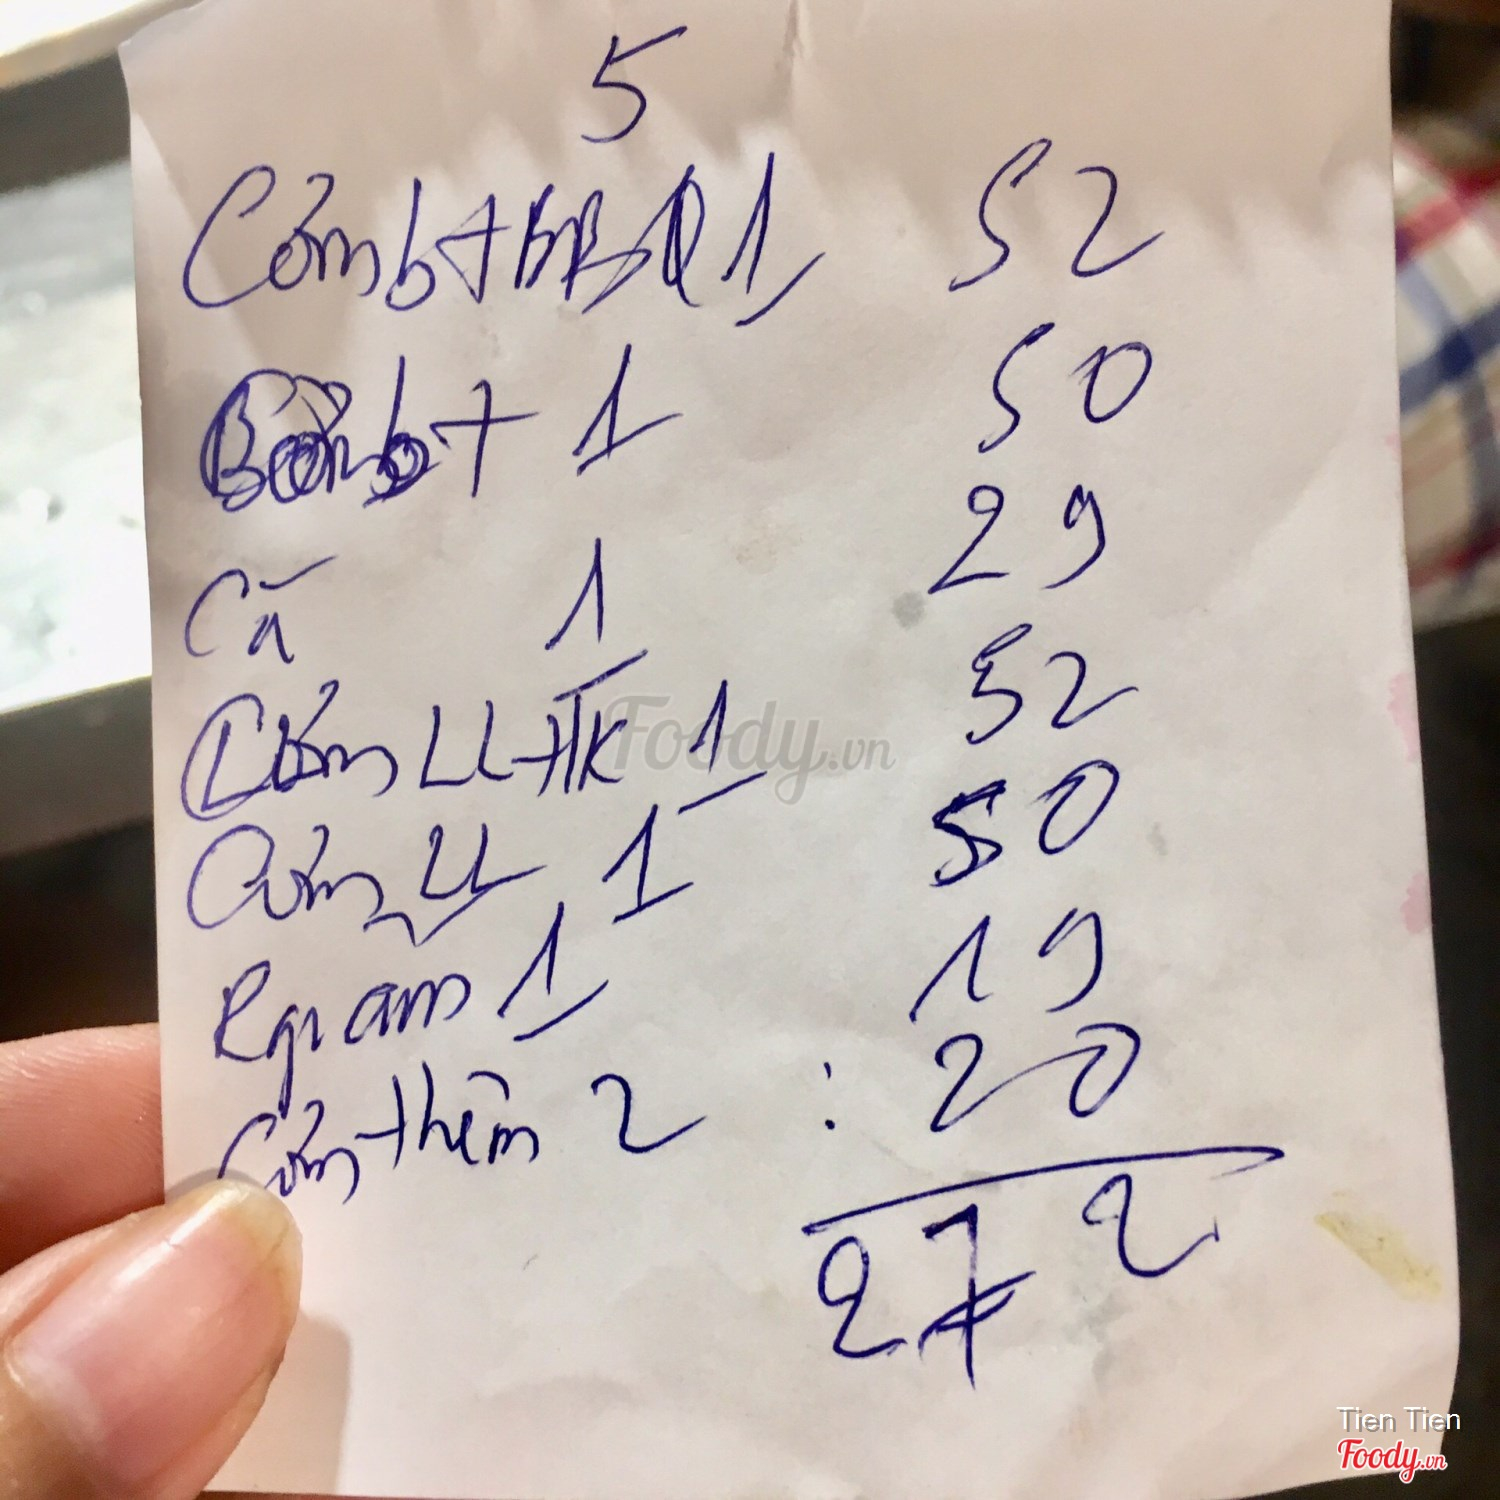 5
Cơm bt BBQ 1 52
Cơm bt 1 50
Cá 1 29
Cơm LL + TK 1 52
Cơm LL 1 50
R quam 1 19
Cơm thêm 2 : 20
272
Foody.vn
Tien Tien
Foody.vn